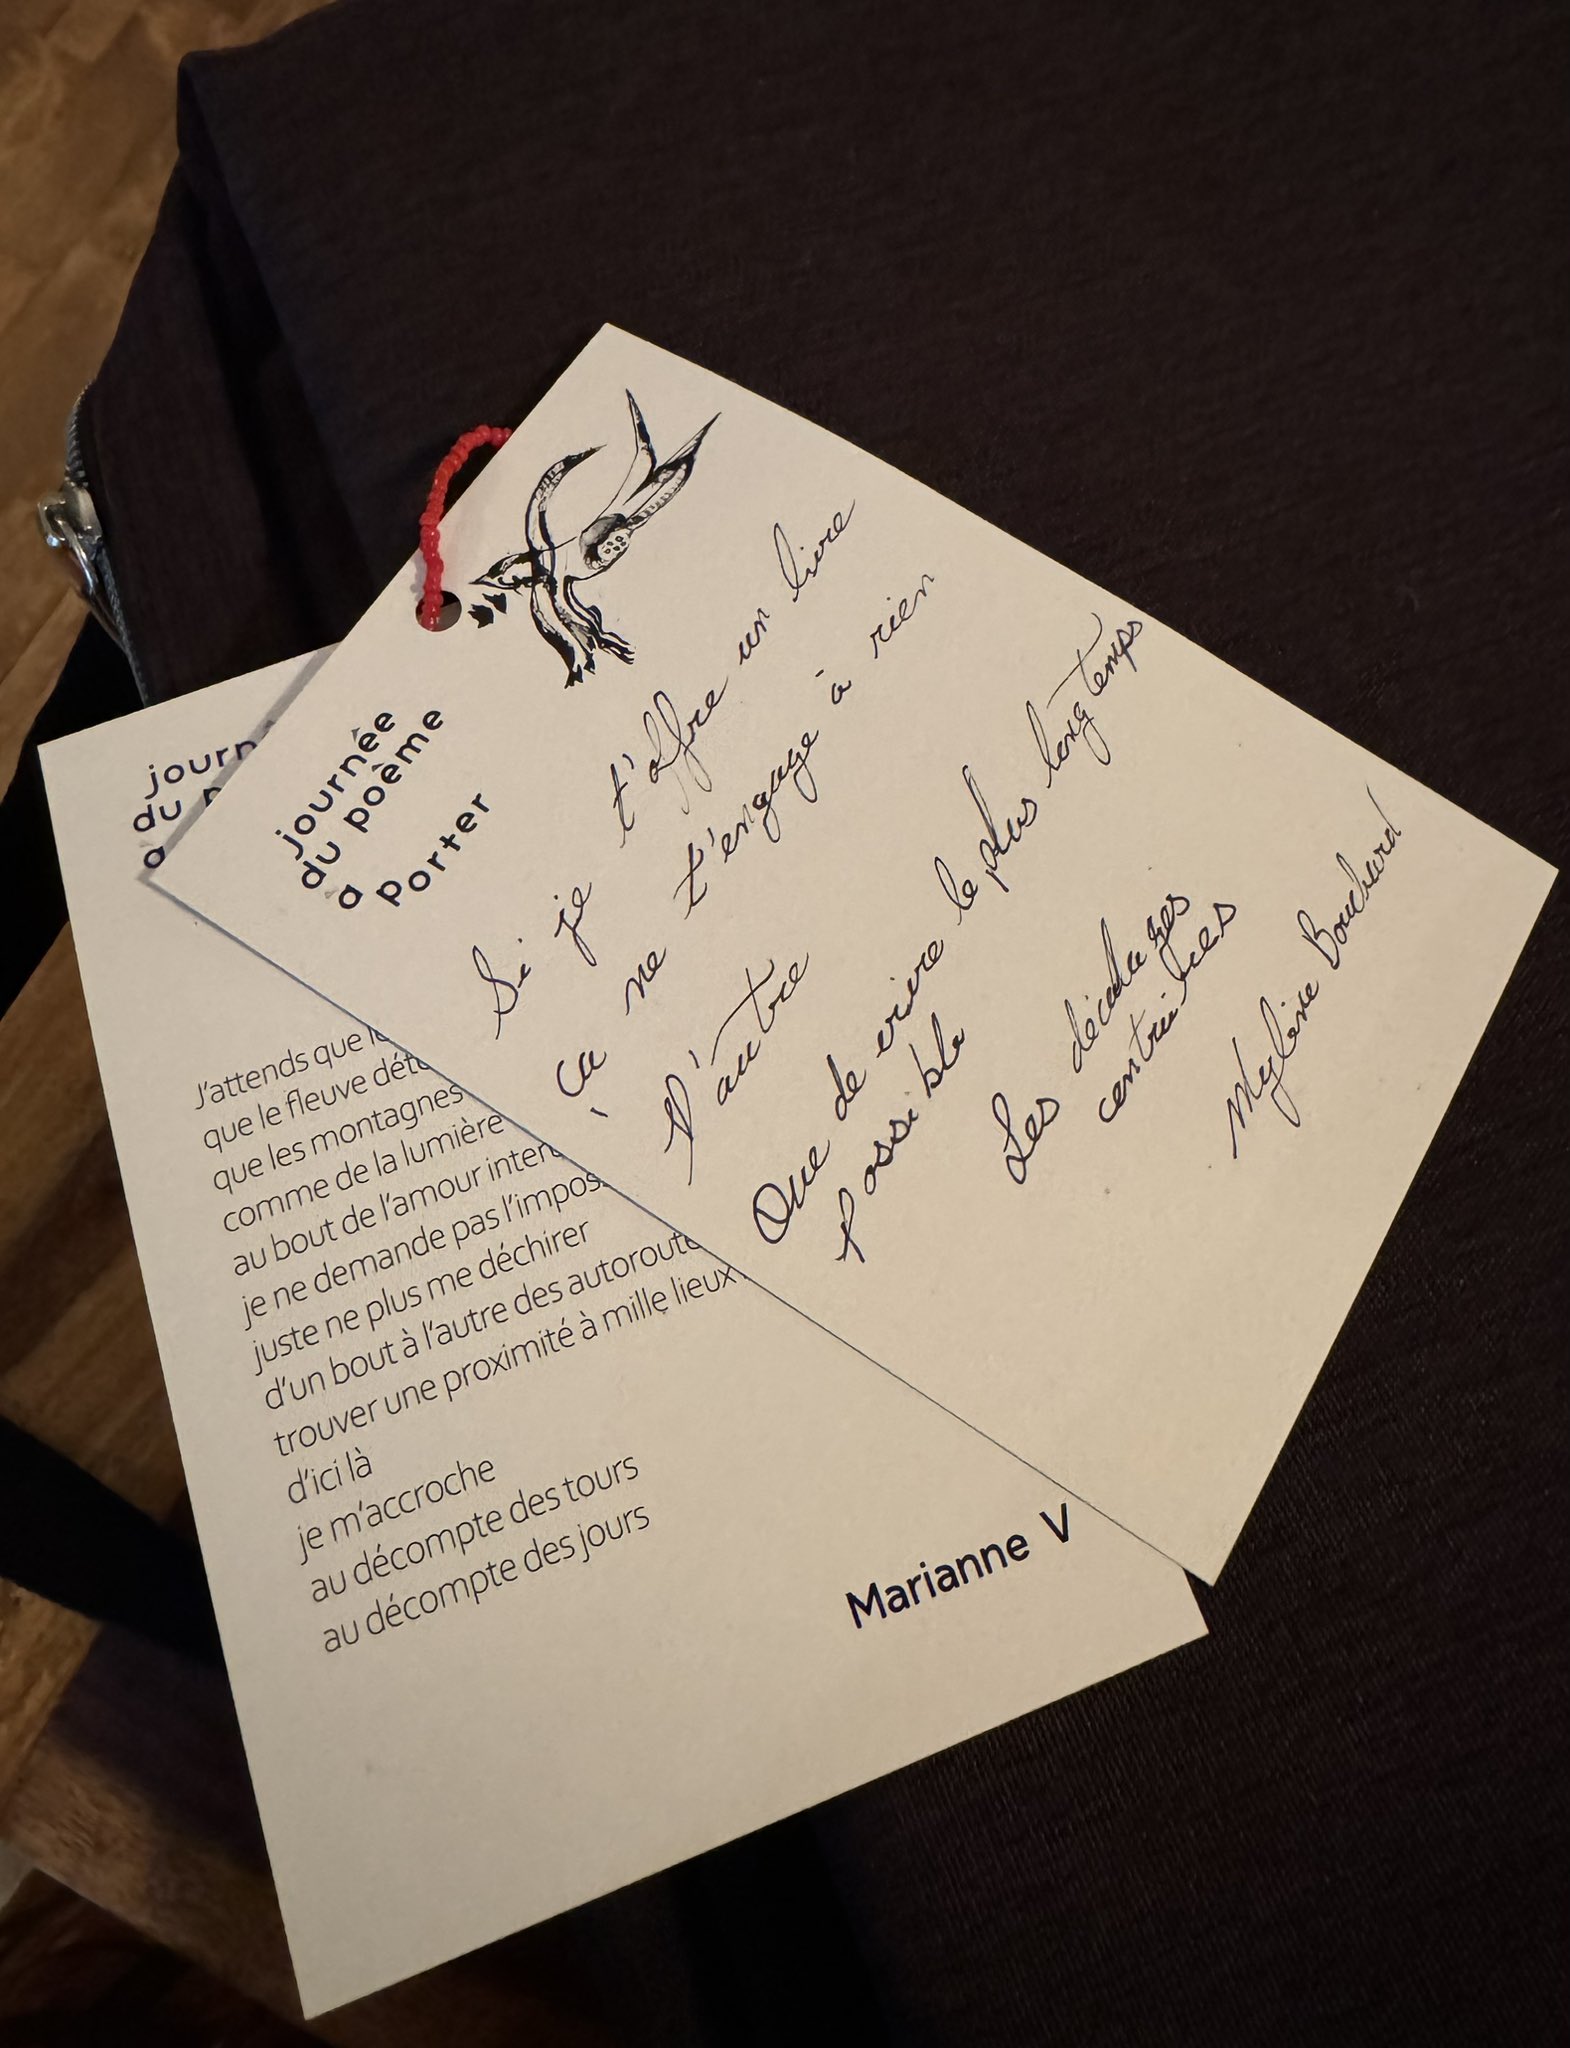 journée
du poème
à porter
Si je t'offre un livre
ça ne t'engage à rien
D'autre
Que de vivre le plus longtemps
possible
Les décalages
centrifuges
Mylène Bouchard
journ
du p
à
J'attends que l
que le fleuve dét
que les montagnes
comme de la lumière
au bout de l'amour inter
je ne demande pas l'impos
juste ne plus me déchirer
d'un bout à l'autre des autoroute
trouver une proximité à mille lieux
d'ici là
je m'accroche
au décompte des tours
au décompte des jours
Marianne V